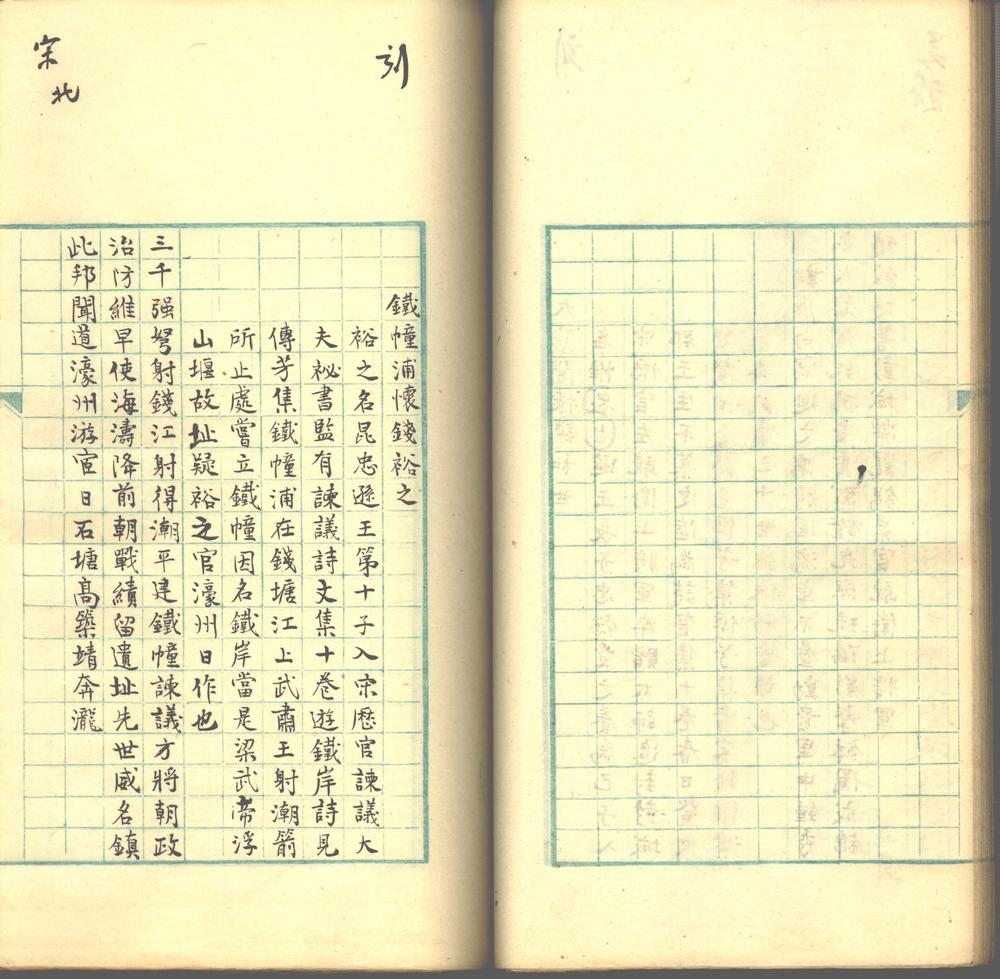 刻
宋
北
鐵幢浦懷錢裕之
裕之名昆忠遜王第十子入宋歷官諫議大
夫祕書監有諫議詩文集十卷遊鐵岸詩見
傳芳集鐵幢浦在錢塘江上武肅王射潮箭
所止處嘗立鐵幢因名鐵岸當是梁武帝浮
山堰故址疑裕之官濠州日作也
三千强弩射錢江射得潮平建鐵幢諫議方將朝政
治防維早使海濤降前朝戰績留遺址先世威名鎮
此邦聞道濠州游宦日石塘高築靖奔瀧